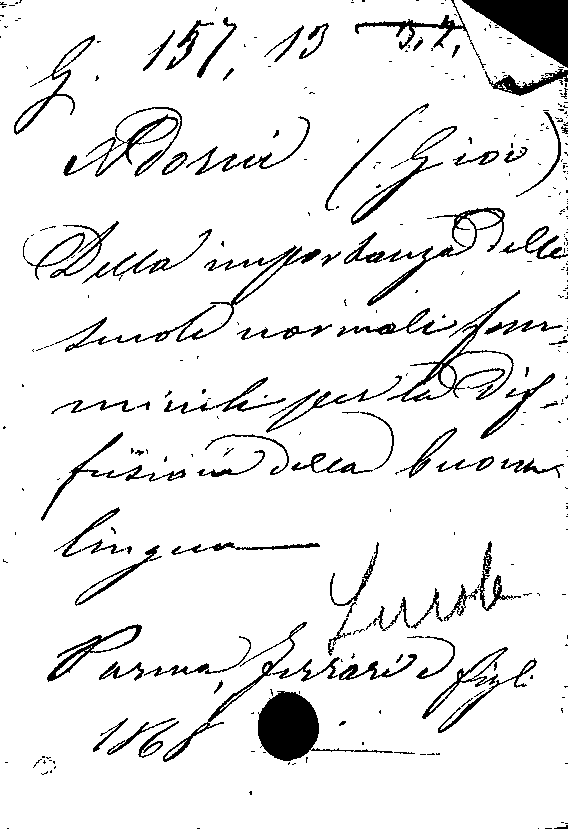 G. 157, 13
Adorni (Giov)
Della importanza delle
scuole normali fem-
minili per la dif-
fusione della buona
lingua
Scuole
Parma, Ferrari e figli
1868